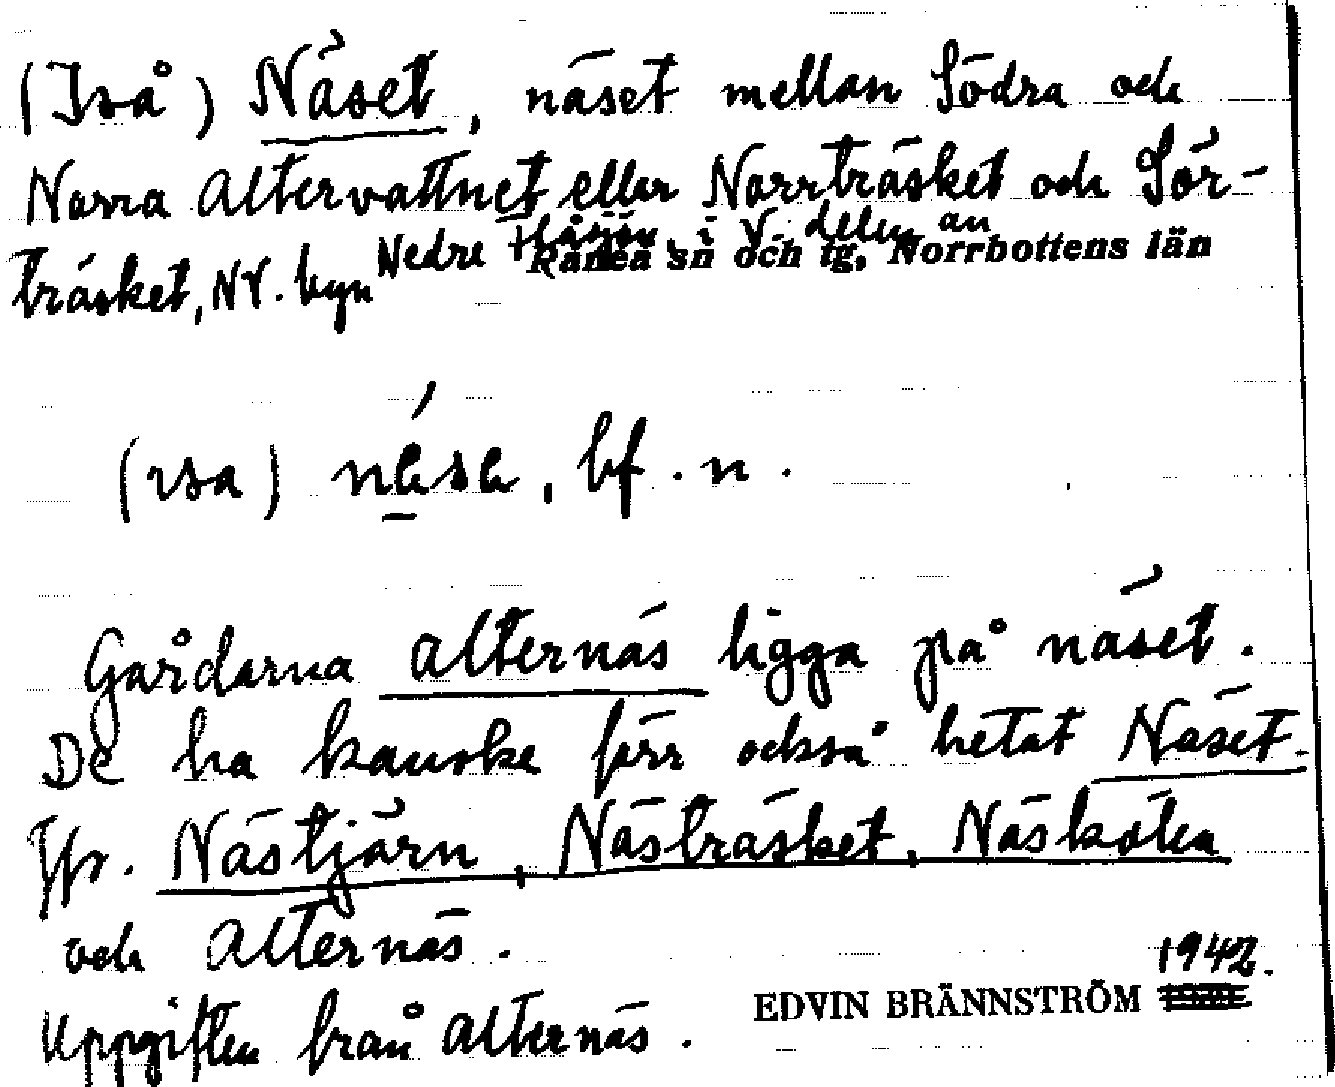 (Iså) Näset, näset mellan Södra och
Norra Altervattnet eller Norrträsket och Sör-
träsket, NV. byn Nedre Flåsjön, i V. delen av
Råneå sn och tg, Norrbottens län
(ɩsa) , bf. n.
Gårdarna Alternäs ligga på näset.
De ha kanske förr också hetat Näset.
Jfr. Nästjärn, Nästräsket, Näskölen
och Alternäs.
Uppgiften från Alternäs.
EDVIN BRÄNNSTRÖM 1942.